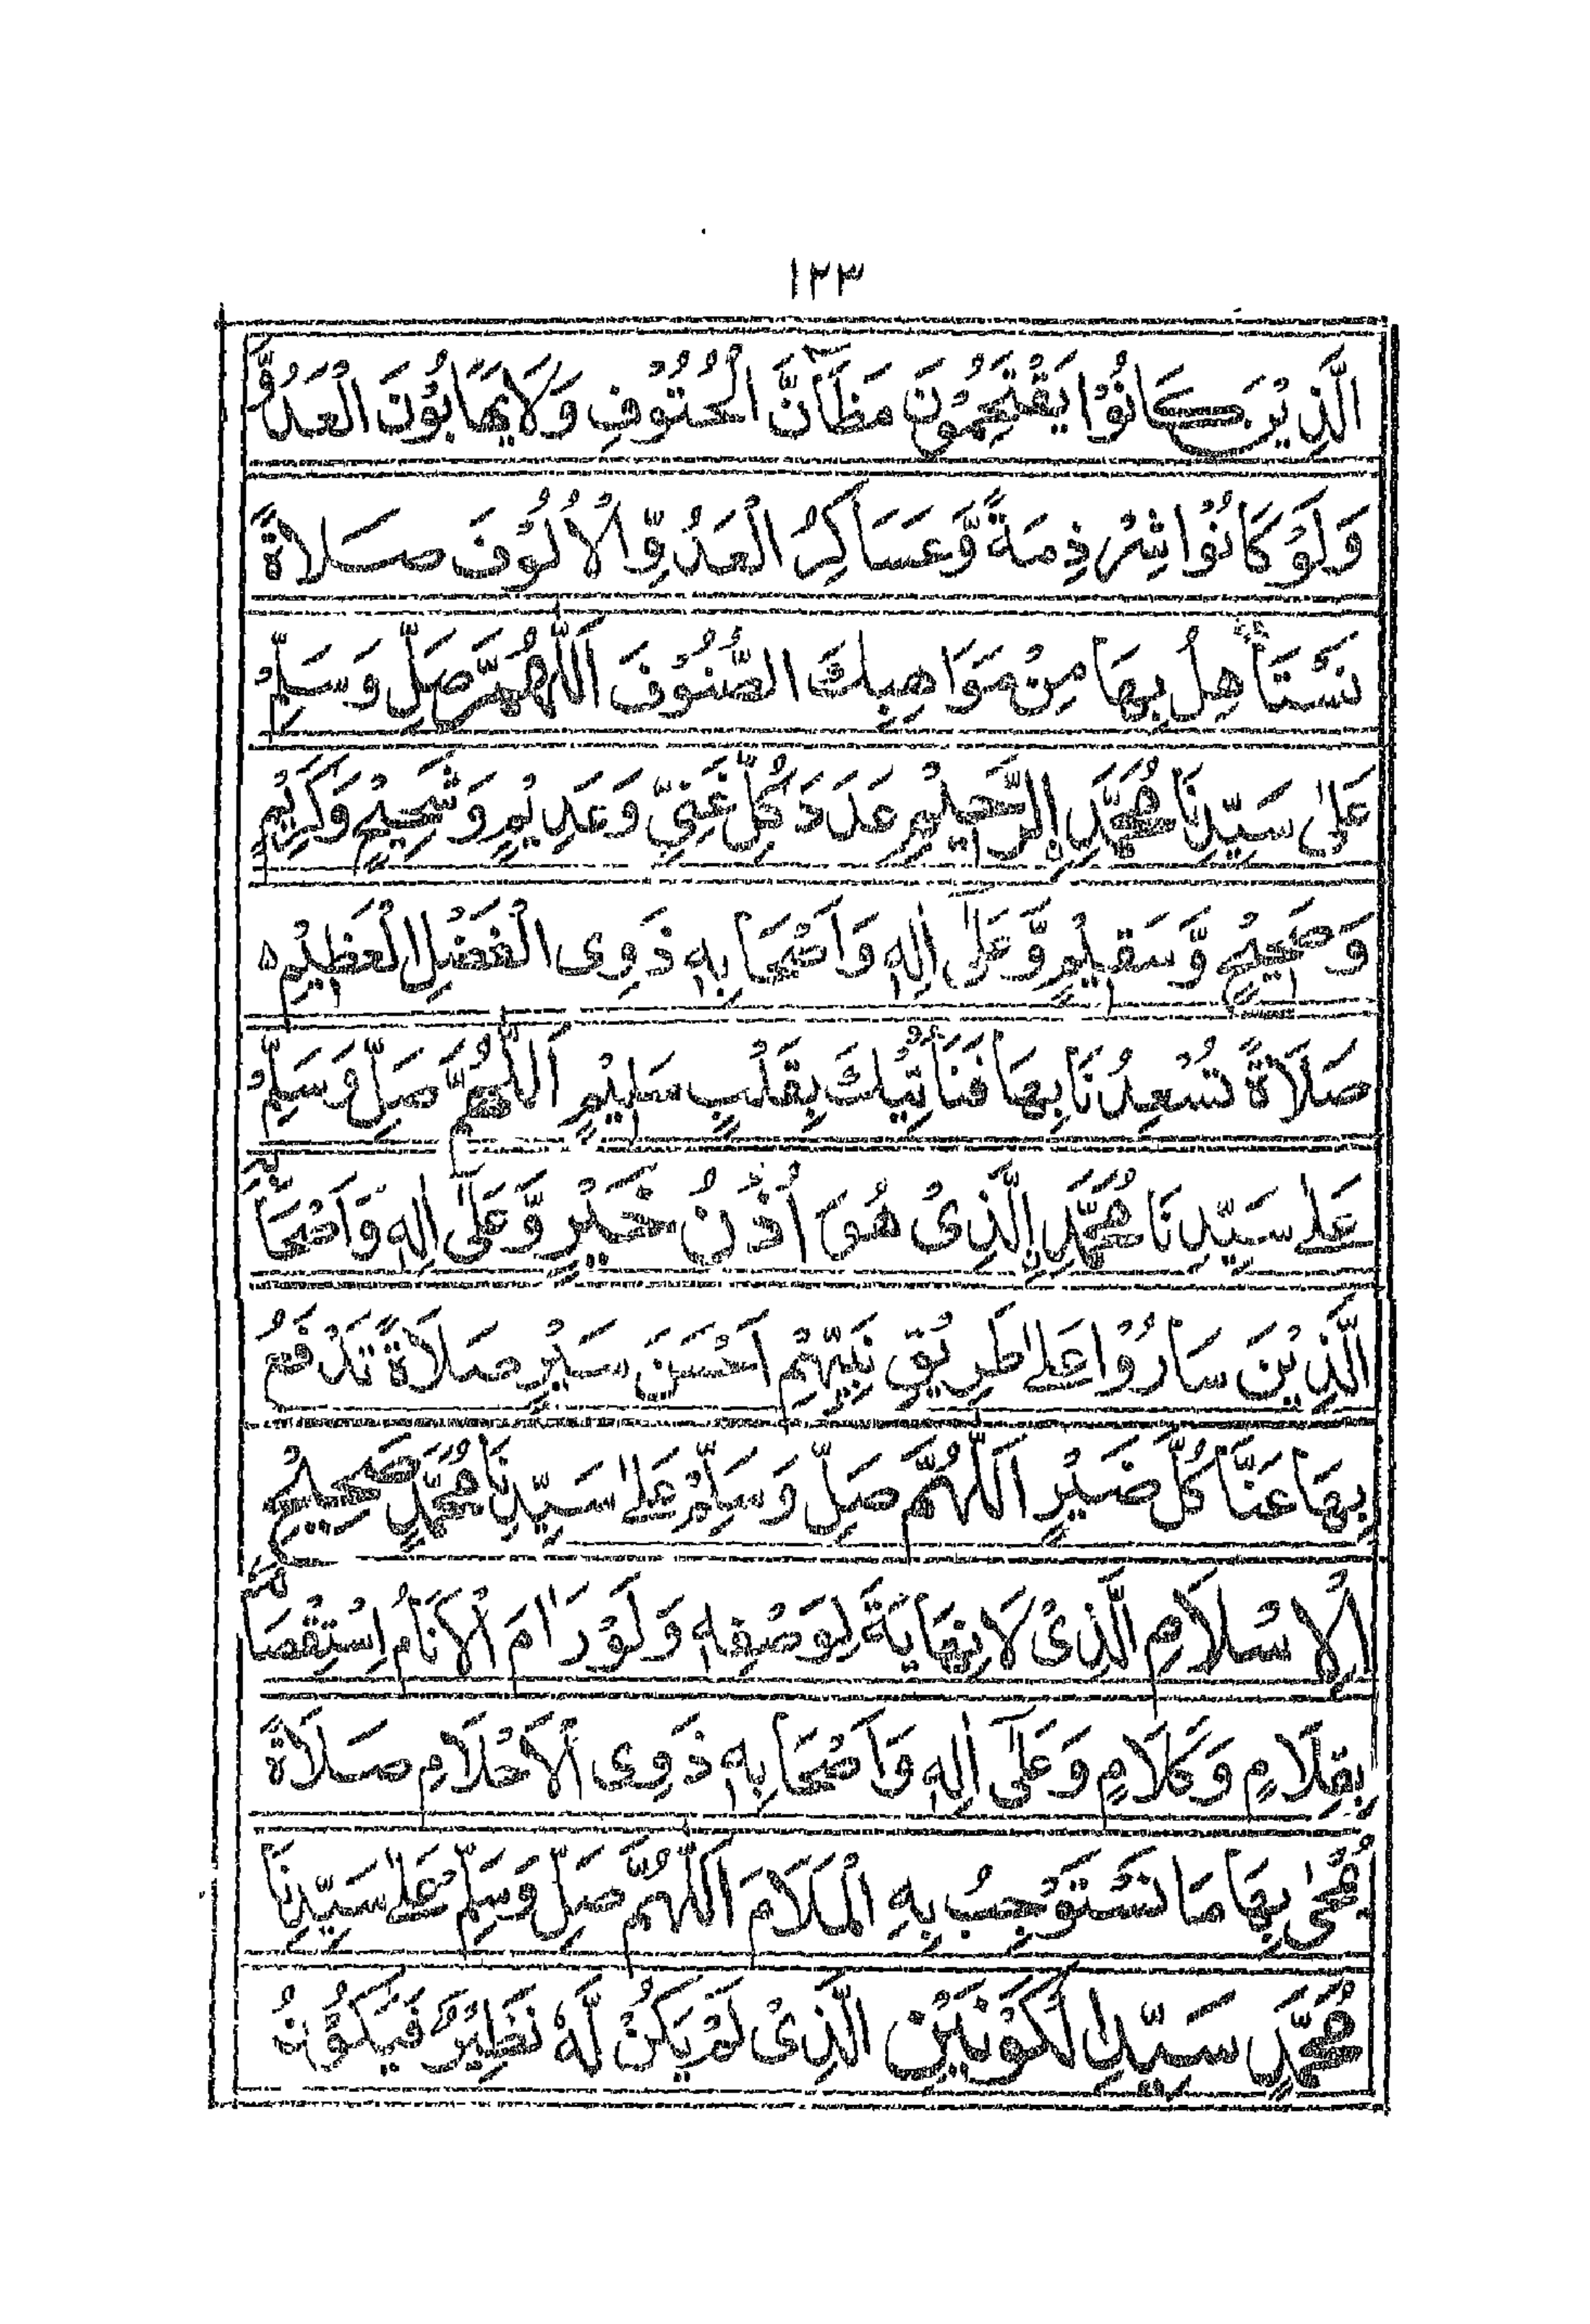 ١٢٣
الَّذِيْنَ كَانُوْا يَقْتَحِمُوْنَ مَظَآنَّ الْحُتُوْفِ وَلَا يَهَابُوْنَ الْعَدُوَّ
وَلَوْ كَانُوْا شِرْذِمَةً وَّعَسَاكِرُ الْعَدُوِّ الْاُلُوْفَ صَلَاةً
نَسْتَأْهِلُ بِهَا مِنْ مَوَاهِبِكَ الصُّنُوْفَ اَللّٰهُمَّ صَلِّ وَسَلِّمْ
عَلٰى سَيِّدِنَا مُحَمَّدِ نِ الرَّحِيْمِ عَدَدَ كُلِّ غَنِيٍّ وَعَدِيْمٍ وَشَحِيْحٍ وَكَرِيْمٍ
وَصَحِيْحٍ وَّسَقِيْمٍ وَّعَلٰٓى اٰلِهٖ وَاَصْحَابِهٖ ذَوِى الْفَضْلِ الْعَظِيْمِ ه
صَلَاةً تُسْعِدُنَا بِهَا فَنَأْتِيْكَ بِقَلْبٍ سَلِيْمٍ اَللّٰهُمَّ صَلِّ وَسَلِّمْ
عَلٰى سَيِّدِنَا مُحَمَّدِ نِ الَّذِىْ هُوَ اُذُنُ خَيْرٍ وَّعَلٰٓى اٰلِهٖ وَاَصْحَابِهِ
الَّذِيْنَ سَارُوْا عَلٰى طَرِيْقِ نَبِيِّهِمْ اَحْسَنَ سَيْرٍ صَلَاةً تَدْفَعُ
بِهَا عَنَّا كُلَّ ضَيْرٍ اَللّٰهُمَّ صَلِّ وَسَلِّمْ عَلٰى سَيِّدِنَا مُحَمَّدٍ صَحِيْحِ
الْاِسْلَامِ الَّذِىْ لَا نِهَايَةَ لِوَصْفِهٖ وَلَوْ رَامَ الْاَنَامُ اسْتِقْصَاءَهُ
بِقَلَامٍ وَكَلَامٍ وَعَلٰٓى اٰلِهٖ وَاَصْحَابِهٖ ذَوِى الْاَحْلَامِ صَلَاةً
تُمْحٰى بِهَا مَا نَسْتَوْجِبُ بِهِ الْمَلَامَ اَللّٰهُمَّ صَلِّ وَسَلِّمْ عَلٰى سَيِّدِنَا
مُحَمَّدٍ سَيِّدِ الْكَوْنَيْنِ الَّذِىْ لَمْ يَكُنْ لَّهٗ نَظِيْرٌ فَيَكُوْنُ